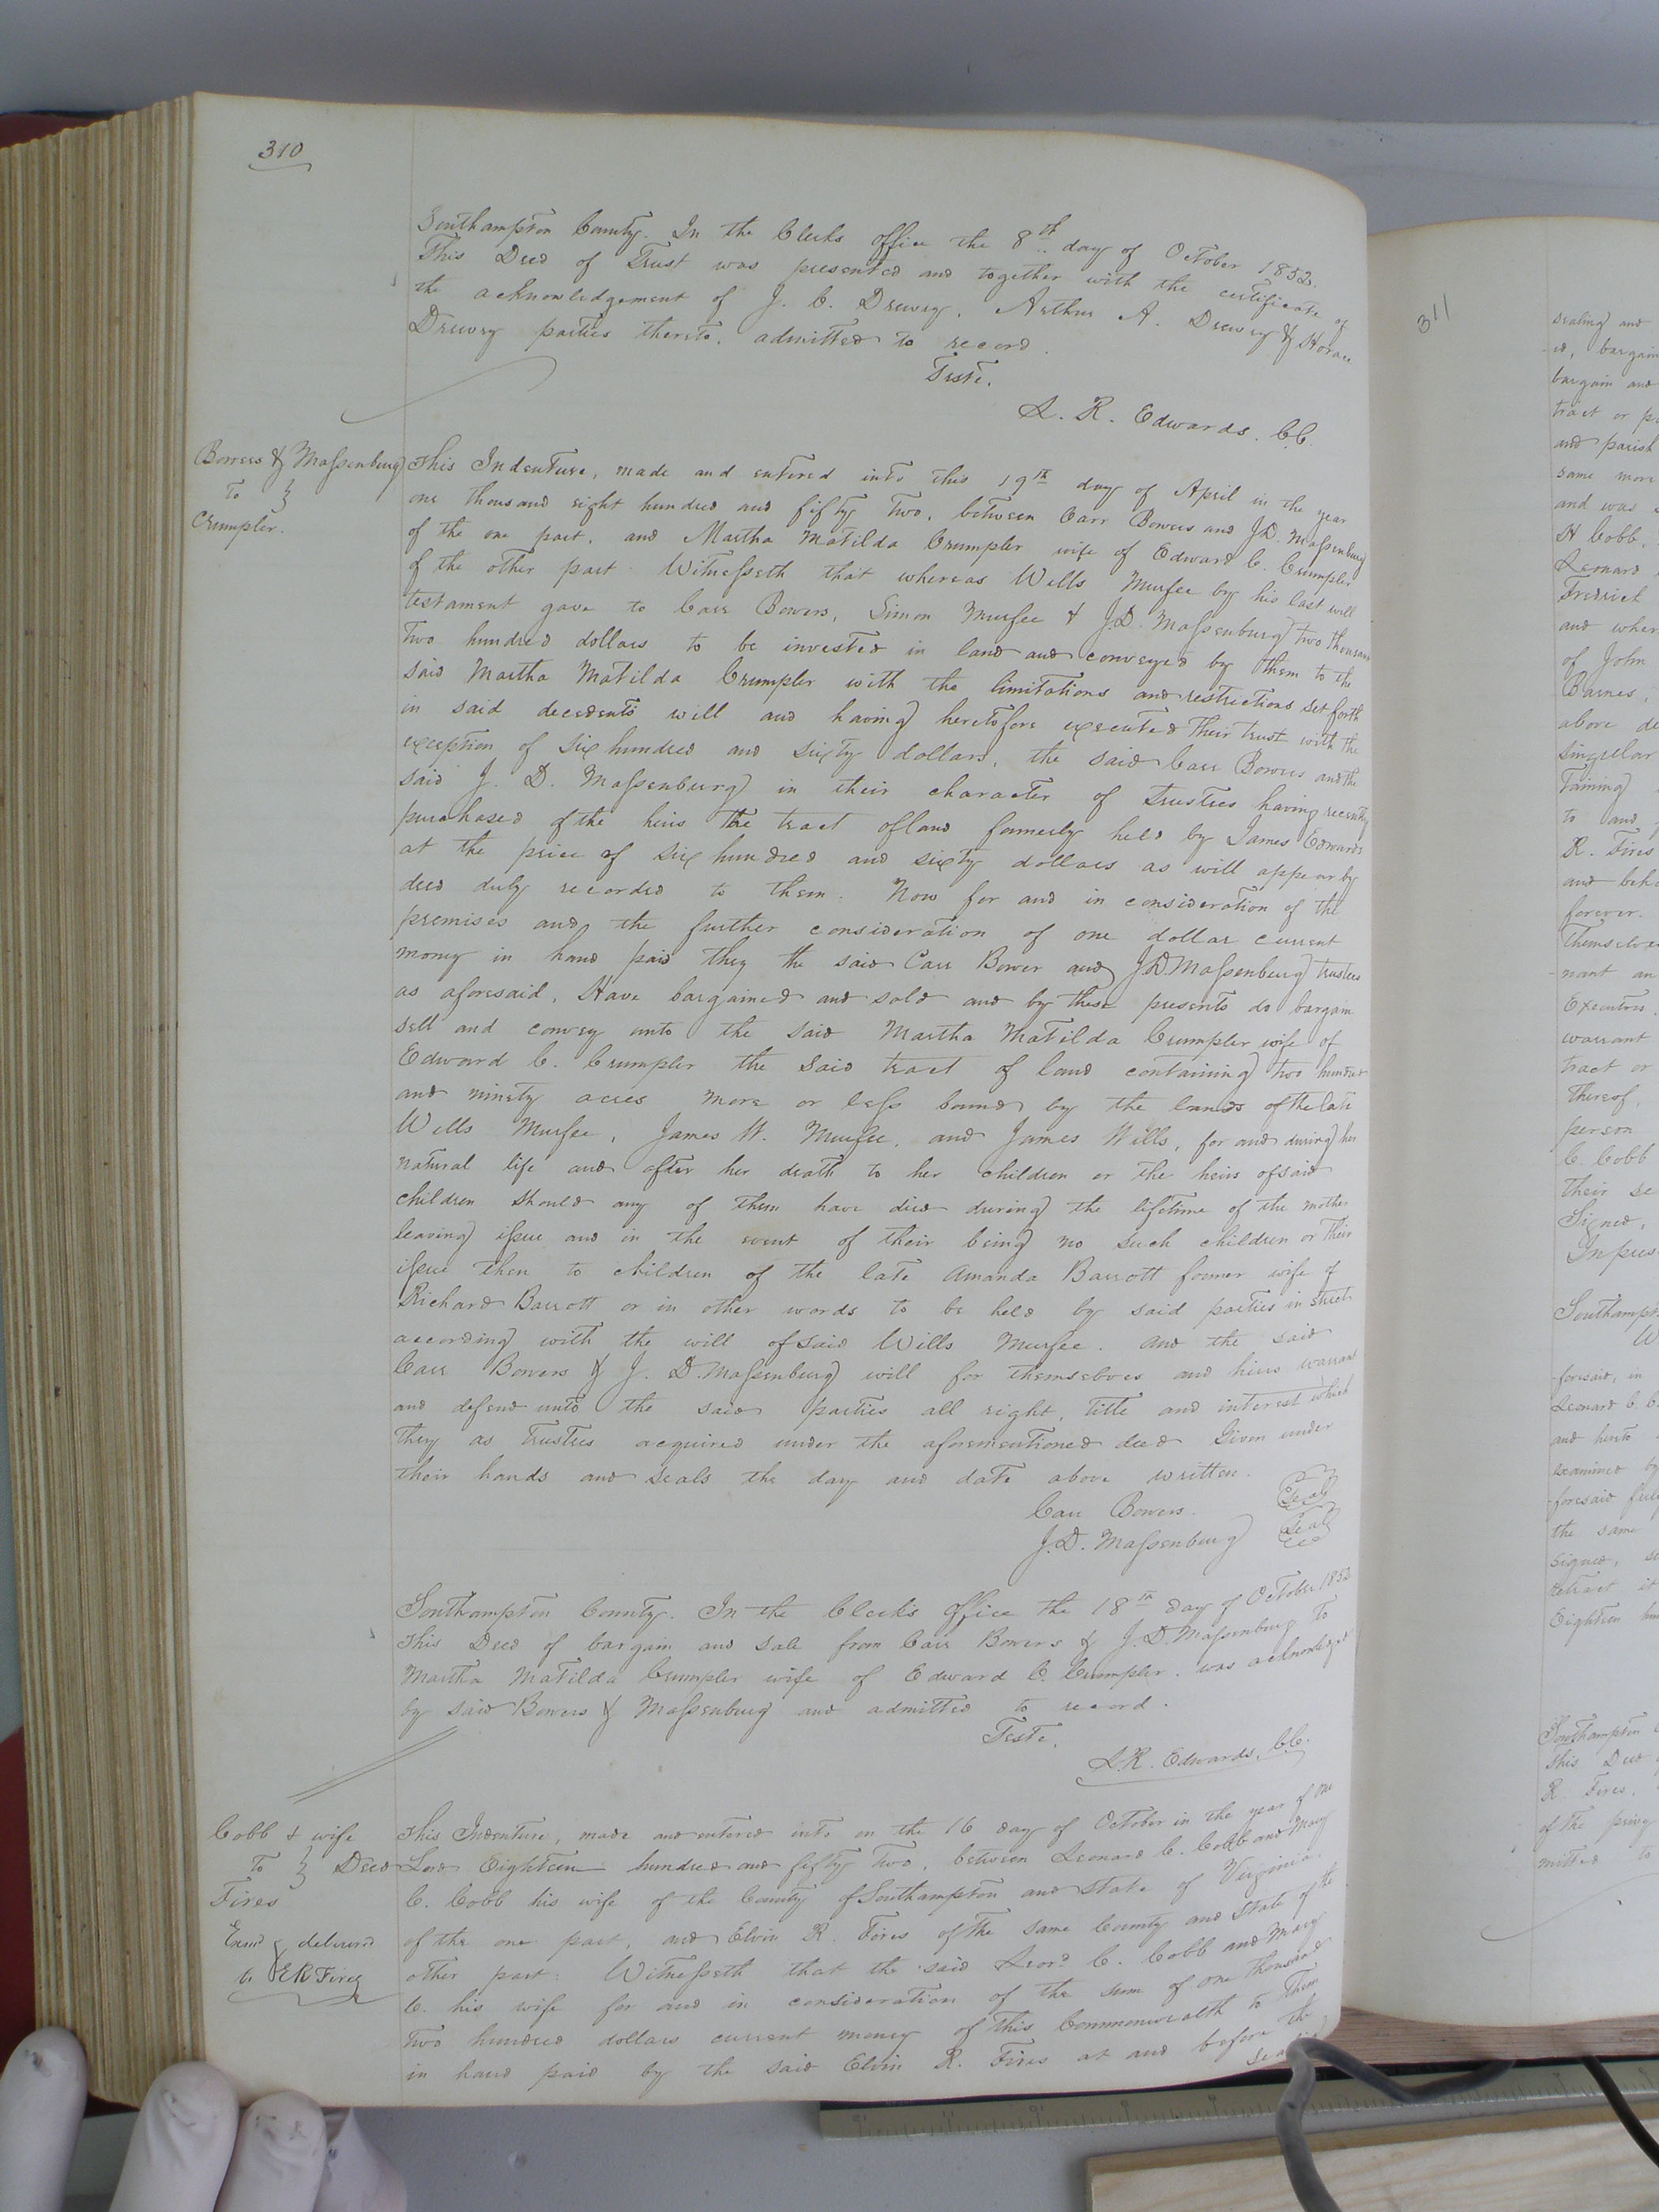 310
Southampton County. In the Clerks office the 8th day of October 1852.
This Deed of Trust was presented and together with the certificate of
the acknowledgement of J. C. Drewry, Arthur A. Drewry & Horace
Drewry parties thereto, admitted to record.
Teste,
L. R. Edwards. CC.
Bowers & Maſsenburg
To
Crumpler.
This Indenture, made and entered into this 19th day of April in the year
one thousand eight hundred and fifty Two, between Carr Bowers and J.D. Maſsenburg
of the one part, and Martha Matilda Crumpler wife of Edward C. Crumpler
of the other part Witneſseth that whereas Wells Murfee by his last will
testament gave to Carr Bowers, Simon Murfee & J.D. Maſsenburg two thousand
Two hundred dollars to be invested in land and conveyed by them to the
said Martha Matilda Crumpler with the limitations and restrictions set forth
in said decedents will and having heretofore executed their trust with the
exception of six hundred and sixty dollars, the said Carr Bowers and the
said J. D. Maſsenburg in their character of Trustees having recently
purchased of the heirs the tract of land formerly held by James Edwards
at the price of six hundred and sixty dollars as will appear by
deed duly recorded to them. Now for and in consideration of the
premises and the further consideration of one dollar current
money in hand paid they the said Carr Bower and J.D Maſsenburg trustees
as aforesaid, Have bargained and sold and by these presents do bargain
sell and convey unto the said Martha Matilda Crumpler wife of
Edward C. Crumpler the said tract of land containing two hundred
and ninety acres more or leſs bound by the lands of the late
Wells Murfee, James W. Murfee, and James Wills, for and during her
natural life and after her death to her children or the heirs of said
children should any of them have died during the lifetime of the mother
leaving iſsue and in the event of their being no such children or their
iſsue then to children of the late Amanda Barrott former wife of
Richard Barrott or in other words to be held by said parties in strict
according with the will of said Wills Murfee. And the said
Carr Bowers & J. D. Maſsenburg will for themselves and heirs warrant
and defend unto the said parties all right, title and interest which
they as Trustees acquired under the aforementioned deed Given under
their hands and seals the day and date above written.
Carr Bowers. Seal
J.D. Maſsenburg Seal
Southampton County. In the Clerk's office the 18th day of October 1852
This Deed of bargain and sale from Carr Bowers & J.D. Maſsenburg to
Martha Matilda Crumpler wife of Edward C. Crumpler. was acknowledged
by said Bowers & Maſsenburg and admitted to record.
Teste,
L.R. Edwards, CC.
Cobb & wife
To Deed
Fires
Exmd & delivered
to ER Fires
This Indenture, made and entered into on the 16 day of October in the year of our
Lord Eighteen hundred and fifty Two, between Leonard C. Cobb and Mary
C. Cobb his wife of the County of Southampton and State of Virginia
of the one part, and Elvin R. Fires of the same County and State of the
other part: Witneſseth that the said Leord C. Cobb and Mary
C. his wife for and in consideration of the sum of one thousand
Two hundred dollars current money of this Commonwealth to them
in hand paid by the said Elvin R. Fires at and before the
311
sealing and
bargain and
tract or
and parish
same more
and was
H Cobb.
Leonard
Fredrick
of John
Barnes,
above
to and
R. Fires
forever.
Executors
warrant
tract or
Thereof,
person
C. Cobb
their
Signed,
foresaid, in
Leonard C
and hereto
examined by
foresaid
the same
signed,
retract it
Eighteen
Southampton
This Deed
R. Fires.
of the privy
mitted to